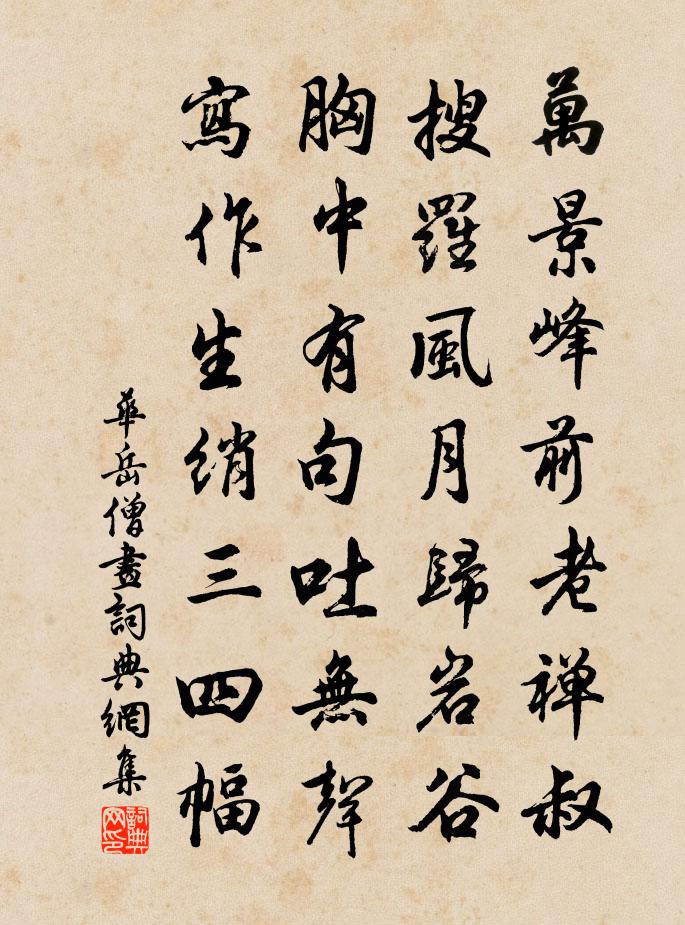 萬景峰前老禅叔
搜羅風月歸岩谷
胸中有句吐無聲
寫作生绡三四幅
華岳僧畫詞典網集
詞典网印